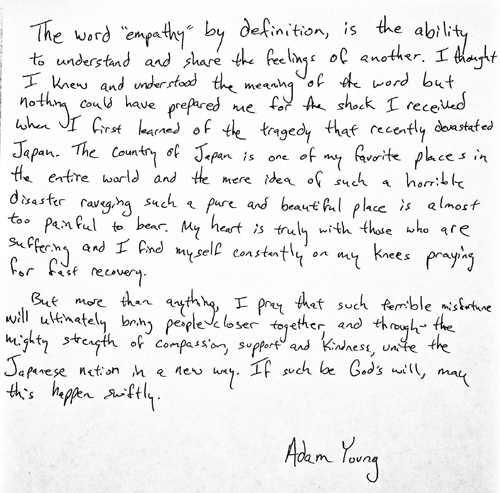 The word "empathy" by definition, is the ability
to understand and share the feelings of another. I thought
I knew and understood the meaning of the word but
nothing could have prepared me for the shock I received
when I first learned of the tragedy that recently devastated
Japan. The country of Japan is one of my favorite places in
the entire world and the mere idea of such a horrible
disaster ravaging such a pure and beautiful place is almost
too painful to bear. My heart is truly with those who are
suffering and I find myself constantly on my knees praying
for fast recovery.
But more than anything, I pray that such terrible misfortune
will ultimately bring people closer together, and through the
mighty strength of compassion, support and kindness, unite the
Japanese nation in a new way. If such be God's will, may
this happen swiftly.
Adam Young